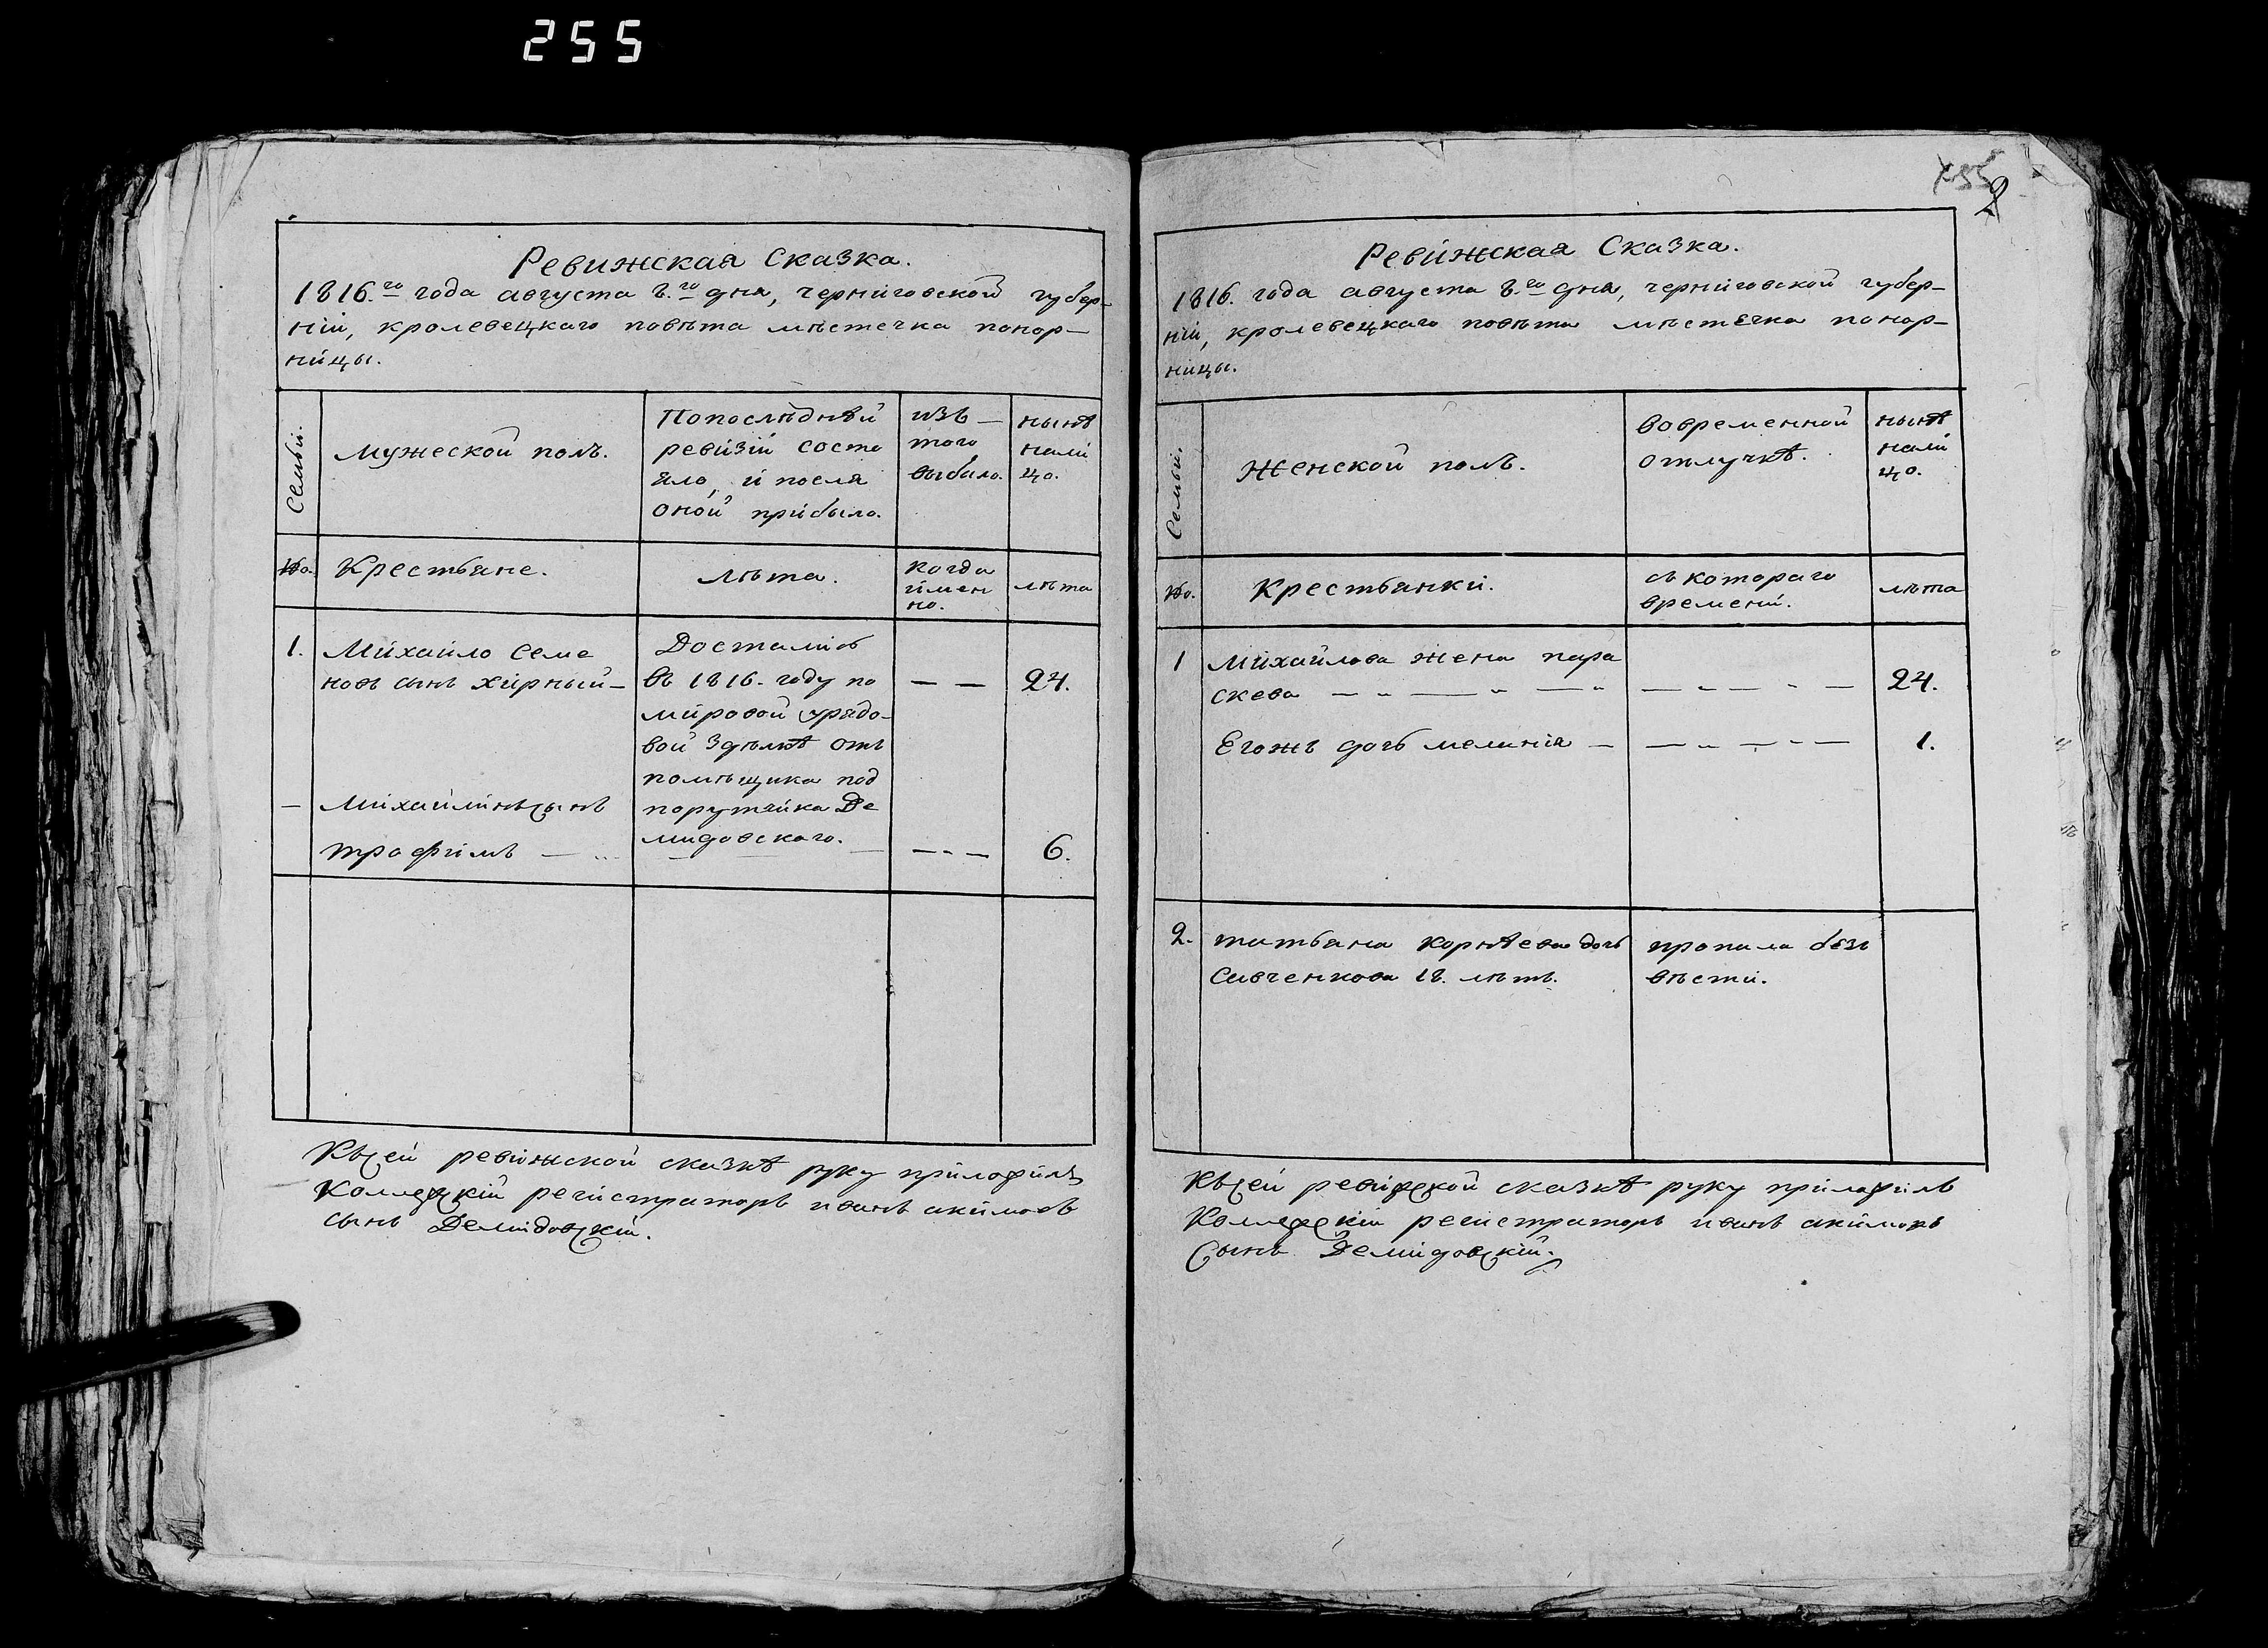 255
Ревижская Сказка.
1816.го года августа 8.го дня, черниговской губер-
нïи, кролевецкаго повѣта мѣстечка понор-
ницы.
Семьи.
мужеской полъ.
Попослѣднѣй
ревизïи состо
яло, и посля
оной прибыло.
изъ-
того
выбыло.
нынѣ
нали
цо.
№.
Крестьяне.
лѣта.
когда
имен
но.
лѣта
1. Михайло Семе
новъ сынъ хирный-
Достались
въ 1816. году по
мировой урядо-
вой здѣлкѣ отъ
помѣщика под
порутчика Де
мидовскаго.
— —
24.
— Михайлинъ сынъ
трофимъ —
— - —
6.
Къ сей ревижской сказкѣ руку приложилъ
Коллежскïй регистраторъ иванъ акимовъ
сынъ Демидовскïй.
2
Ревижская Сказка.
1816. года августа 8.го дня, черниговской губер-
нïи, кролевецкаго повѣта мѣстечка понор-
ницы.
Семьи.
Женской полъ.
вовременной
отлучкѣ.
нынѣ
нали
цо.
№.
Крестьянки.
съ котораго
времени.
лѣта
1 Михайлова жена пара
скева — „ — „ — „ — - — - — 24.
Егожъ дочь меланïя — — - — - — 1.
2. татьяна корнѣева дочь пропала безъ
Савченкова 18. лѣтъ. вѣсти.
Къ сей ревижской сказкѣ руку приложилъ
Коллежскïй регистраторъ иванъ акимовъ
Сынъ Демидовскïй.